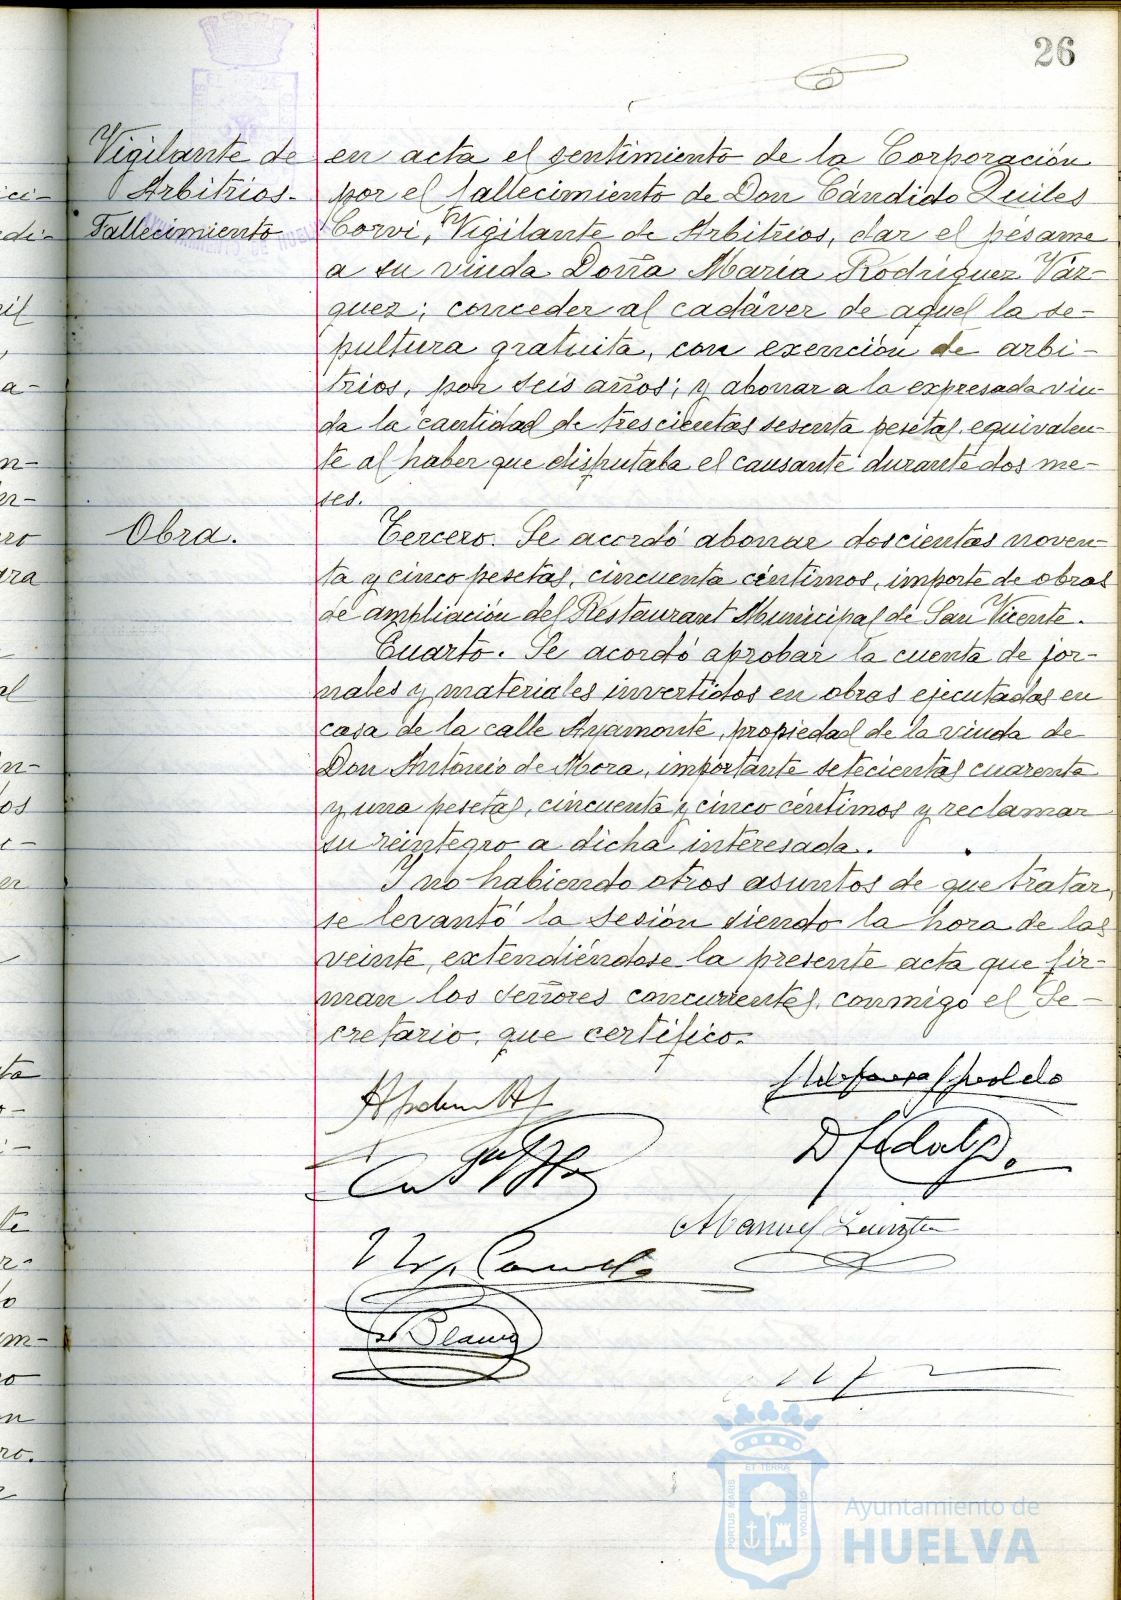 26
Vigilante de
Arbitrios.
Fallecimiento
en acta el sentimiento de la Corporación
por el fallecimiento de Don Cándido Quiles
Corvi, Vigilante de Arbitrios, dar el pésame
a su viuda Doña María Rodríguez Váz-
quez; conceder al cadáver de aquel la se-
pultura gratuita, con exención de arbi-
trios, por seis años; y abonar a la expresada viu-
da la cantidad de trescientas sesenta pesetas, equivalen-
te al haber que disfrutaba el causante durante dos me-
ses.
Obra.
Tercero. Se acordó abonar doscientas noven-
ta y cinco pesetas, cincuenta céntimos, importe de obras
de ampliación del Restaurant Municipal de San Vicente.
Cuarto. Se acordó aprobar la cuenta de jor-
nales y materiales invertidos en obras ejecutadas en
casa de la calle Ayamonte, propiedad de la viuda de
Don Antonio de Mora, importante setecientas cuarenta
y una pesetas, cincuenta y cinco céntimos y reclamar
su reintegro a dicha interesada.
Y no habiendo otros asuntos de que tratar,
se levantó la sesión siendo la hora de las
veinte, extendiéndose la presente acta que fir-
man los señores concurrentes, conmigo el Se-
cretario, que certifico.
Manuel
Blanco
PORTUS MARIS
ET TERRÆ
CUSTODIA
Ayuntamiento de
HUELVA